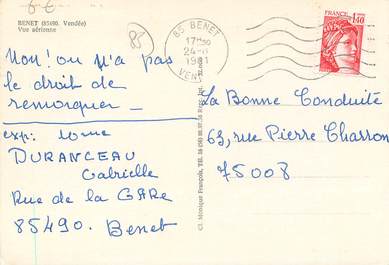 6 €
BENET (85490. Vendée)
Vue aérienne
85
85 BENET
17H30
24-8
1981
VENDEE
FRANCE
1,40
Non! on n'a pas
le droit de
remorquer _
exp: Mme
DURANCEAU
Gabrielle
Rue de la GARE
85490. Benet
La Bonne Conduite
63, rue Pierre Charron
75008
Cl. Monique François, Tél.